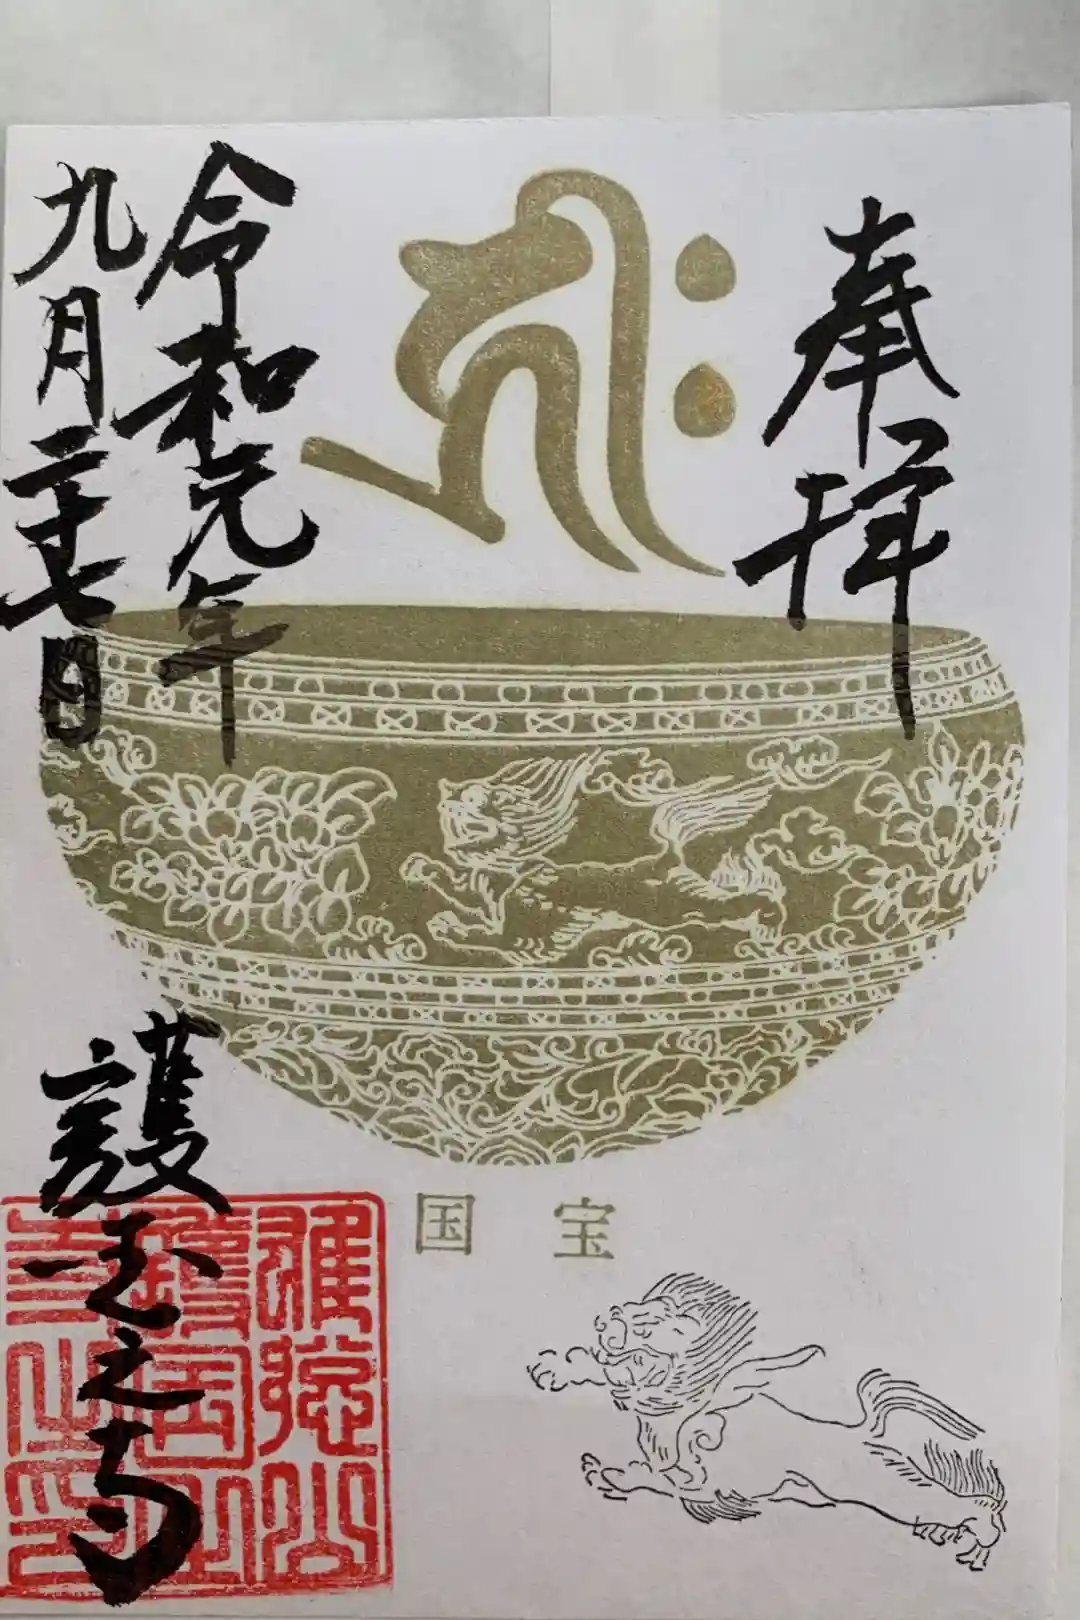 奉拝
令和元年
九月二十七日
国宝
護国之寺